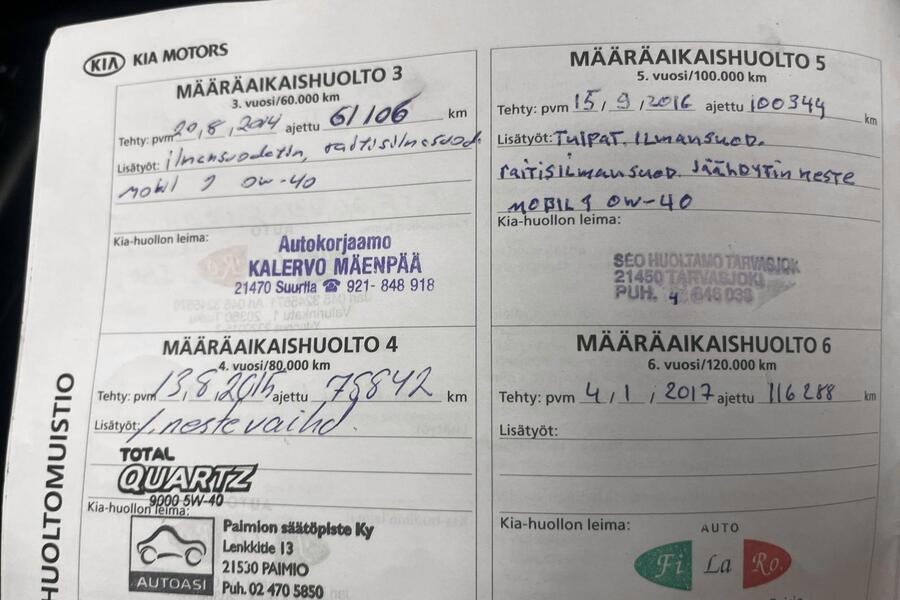 KIA KIA MOTORS
MÄÄRÄAIKAISHUOLTO 3
3. vuosi/60.000 km
Tehty: pvm 20, 8, 2014 ajettu 61106 km
Lisätyöt: ilmansuodatin, raitisilmasuod.
Mobil 1 0w-40
Kia-huollon leima:
Autokorjaamo
KALERVO MÄENPÄÄ
21470 Suurila ☎ 921- 848 918
MÄÄRÄAIKAISHUOLTO 4
4. vuosi/80.000 km
Tehty: pvm 13,8,2015 ajettu 78842 km
Lisätyöt: j.nestevaihd.
TOTAL
QUARTZ
9000 5W-40
Kia-huollon leima:
AUTOASI
Paimion säätöpiste Ky
Lenkkitie 13
21530 PAIMIO
Puh. 02 470 5850
HUOLTOMUISTIO
MÄÄRÄAIKAISHUOLTO 5
5. vuosi/100.000 km
Tehty: pvm 15, 9, 2016 ajettu 100344 km
Lisätyöt: TULPAT. ILMANSUOD.
RAITISILMANSUOD. JÄÄHDYTIN NESTE
MOBIL 1 0W-40
Kia-huollon leima:
SEO HUOLTAMO TARVASJOK
21450 TARVASJOKI
PUH. 4 846 038
MÄÄRÄAIKAISHUOLTO 6
6. vuosi/120.000 km
Tehty: pvm 4, 1, 2017 ajettu 116288 km
Lisätyöt:
Kia-huollon leima:
AUTO
Fi La Ro.